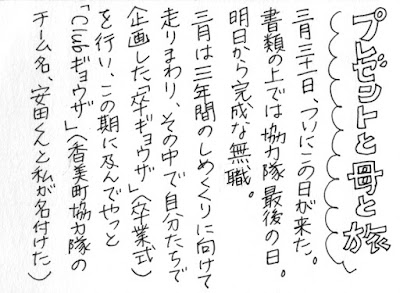 プレゼントと母と旅
三月三十一日、ついにこの日が来た。
書類の上では協力隊最後の日。
明日から完成な無職。
三月は三年間のしめくくりに向けて
走りまわり、その中で自分たちで
企画した「卒ギョウザ」（卒業式）
を行い、この期に及んでやっと
「Clubギョウザ」（香美町協力隊の
チーム名、安田くんと私が名付けた）